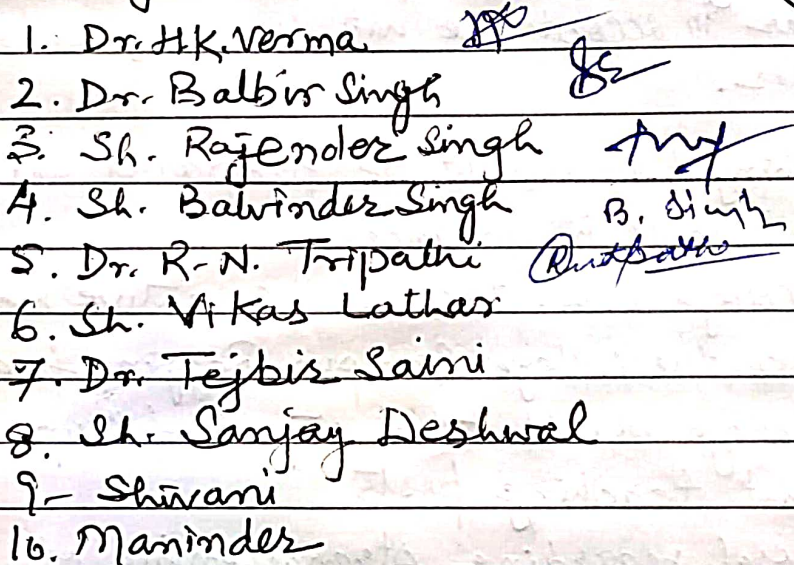 1. Dr. H.K. Verma
2. Dr. Balbir Singh
3. Sh. Rajender Singh
4. Sh. Balvinder Singh B. Singh
5. Dr. R-N. Tripathi
6. Sh. Vikas Lathar
7. Dr. Tejbir Saini
8. Sh. Sanjay Deshwal
9- Shivani
10. Maninder